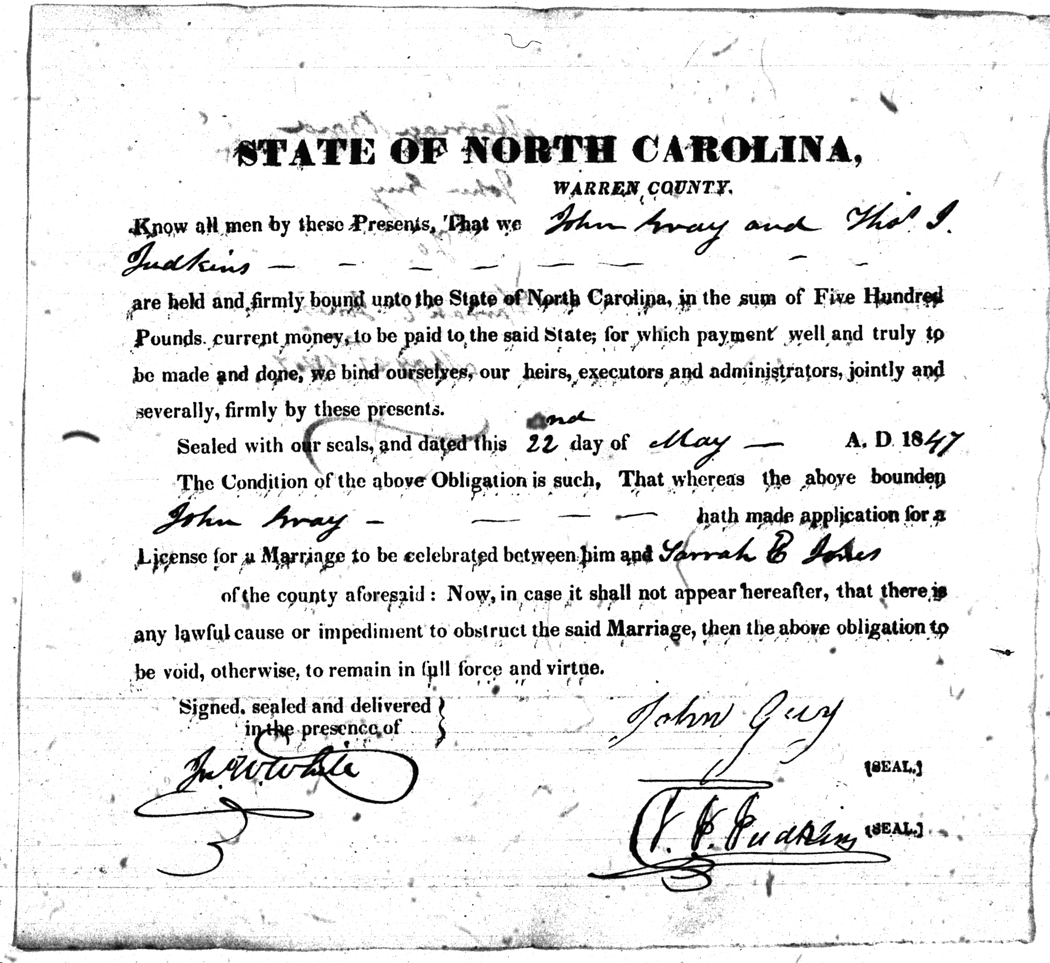 STATE OF NORTH CAROLINA,
WARREN COUNTY.
Know all men by these Presents, That we John Gray and Thos. J.
Judkins — — — — — — — —
are held and firmly bound unto the State of North Carolina, in the sum of Five Hundred
Pounds. current money, to be paid to the said State; for which payment well and truly to
be made and done, we bind ourselves, our heirs, executors and administrators, jointly and
severally, firmly by these presents.
Sealed with our seals, and dated this 22nd day of May — A. D. 1847
The Condition of the above Obligation is such, That whereas the above bounden
John Gray — — — — hath made application for a
License for a Marriage to be celebrated between him and Sarrah E Jones
of the county aforesaid: Now, in case it shall not appear hereafter, that there is
any lawful cause or impediment to obstruct the said Marriage, then the above obligation to
be void, otherwise, to remain in full force and virtue.
Signed, sealed and delivered
in the presence of
John Guy
[SEAL.]
Jno. W. White
T. J. Judkins [SEAL.]